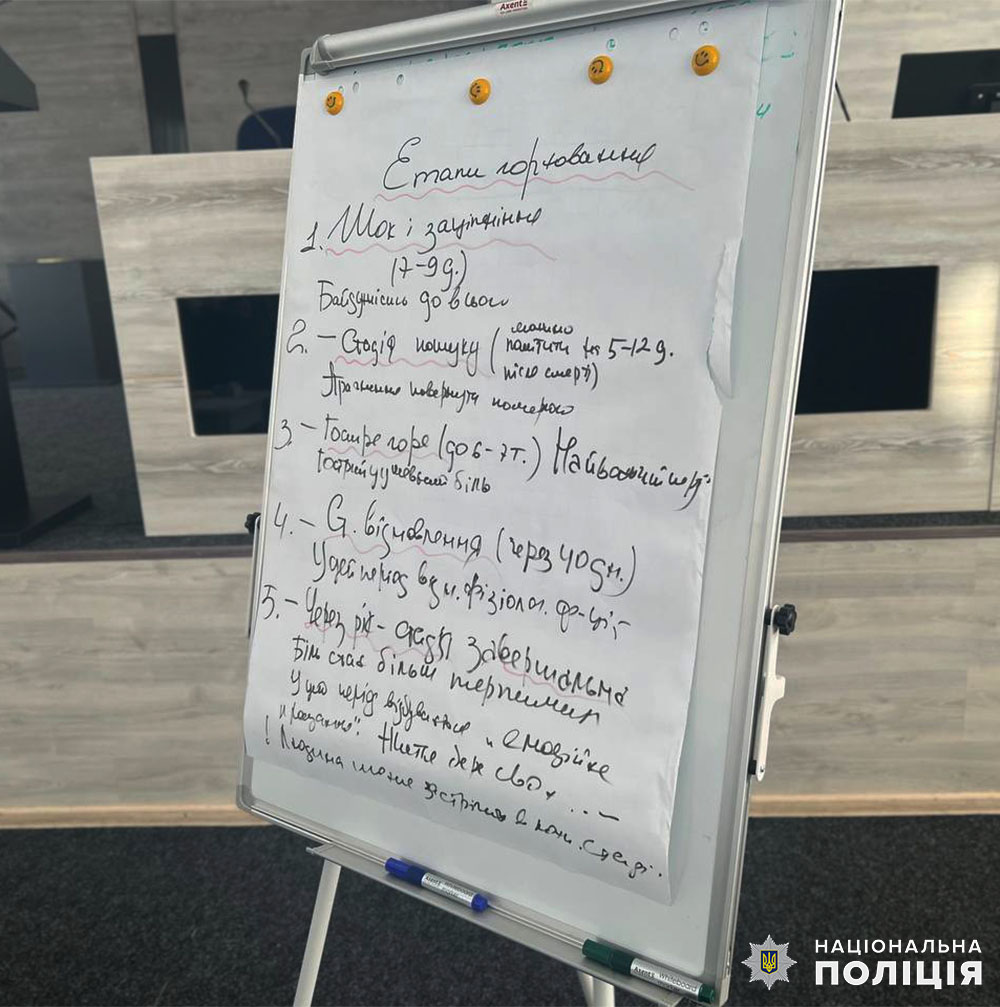 Axent
Етапи горювання
1. Шок і заціпеніння
(7-9 д.)
Байдужість до всього
2. - Стадія пошуку (можно
помітити на 5-12 д.
після смерті)
Прагнення повернути померлого
3. - Гостре горе (до 6-7 т.) Найважчий
Гострий душевний біль
4. - С. відновлення (через 40 дн.)
У цей період відн. фізіолог. ф-ції
5. - Через рік - стадія завершальна
Біль стає більш терпимим
У цей період відбувається "емоційне
прощання". Життя бере своє ...
! Людина може застрягти в кожн. стадії.
Axent
Axent Whiteboard
НАЦІОНАЛЬНА
ПОЛІЦІЯ